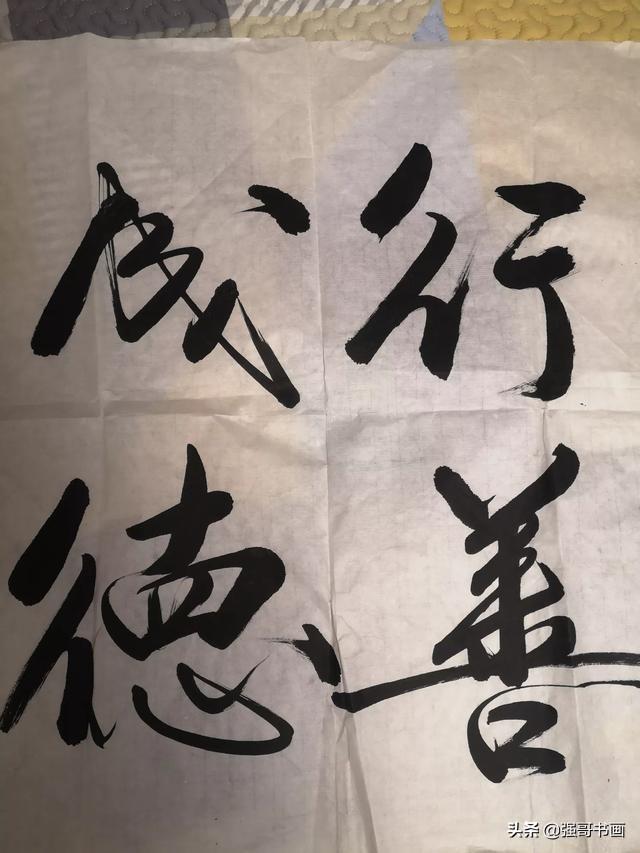 行善
成德
头条 @强哥书画